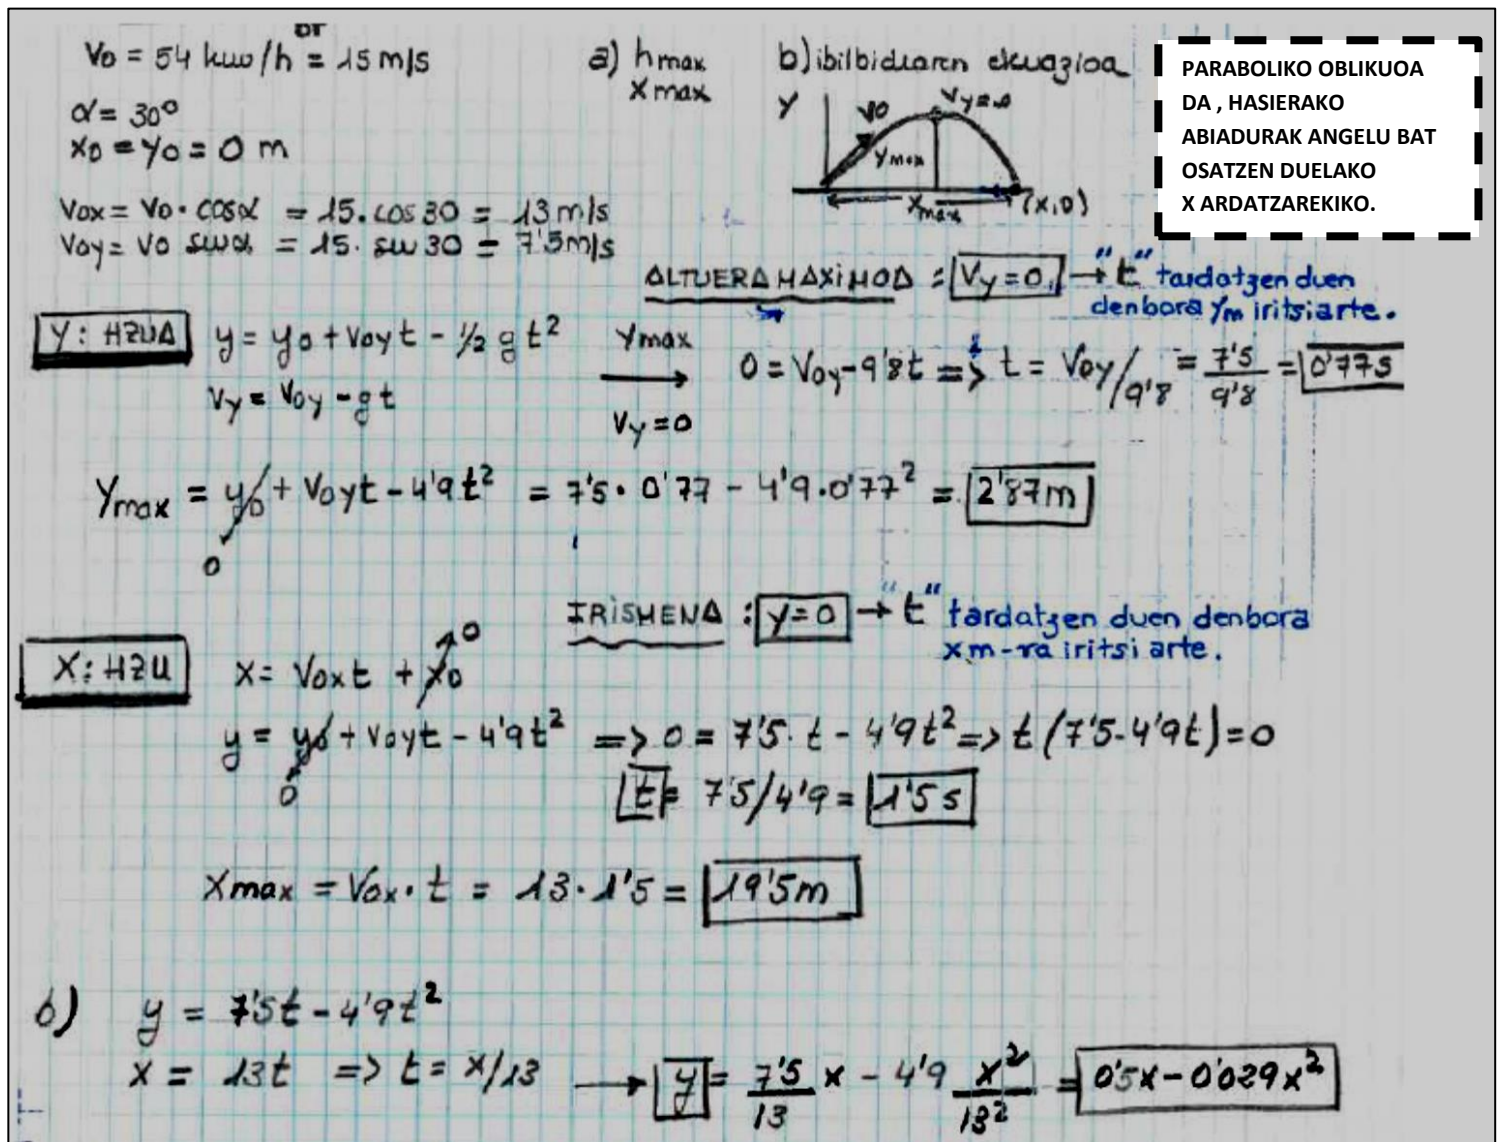 V0 = 54 km/h = 15 m/s
α = 30º
x0 = y0 = 0 m
a) hmax
xmax
b) ibilbidearen ekuazioa
Y
V0
Vy=0
Ymax
xmax
(x,0)
PARABOLIKO OBLIKUOA
DA , HASIERAKO
ABIADURAK ANGELU BAT
OSATZEN DUELAKO
X ARDATZAREKIKO.
V0x = V0 · cosα = 15. cos 30 = 13 m/s
V0y = V0 sinα = 15. sin 30 = 7'5 m/s
ALTUERA MAXIMOA : Vy=0 → "t" tardatzen duen
denbora Ym iritsi arte.
Y: HZUA
y = y0 + V0yt - 1/2 g t²
Vy = V0y - gt
Ymax
→
Vy=0
0 = V0y - 9'8t => t = V0y/9'8 = 7'5/9'8 = 0'77s
Ymax = y0 + V0yt - 4'9t² = 7'5 · 0'77 - 4'9·0'77² = 2'87m
0
IRISMENA : y=0 → "t" tardatzen duen denbora
xm-ra iritsi arte.
X: HZU
x = V0xt + x0
0
y = y0 + V0yt - 4'9t² => 0 = 7'5. t - 4'9t² => t (7'5-4'9t) = 0
0
t = 7'5/4'9 = 1'5 s
Xmax = V0x · t = 13 · 1'5 = 19'5m
b) y = 7'5t - 4'9t²
x = 13t => t = x/13 → y = 7'5/13 x - 4'9 x²/13² = 0'5x - 0'029x²